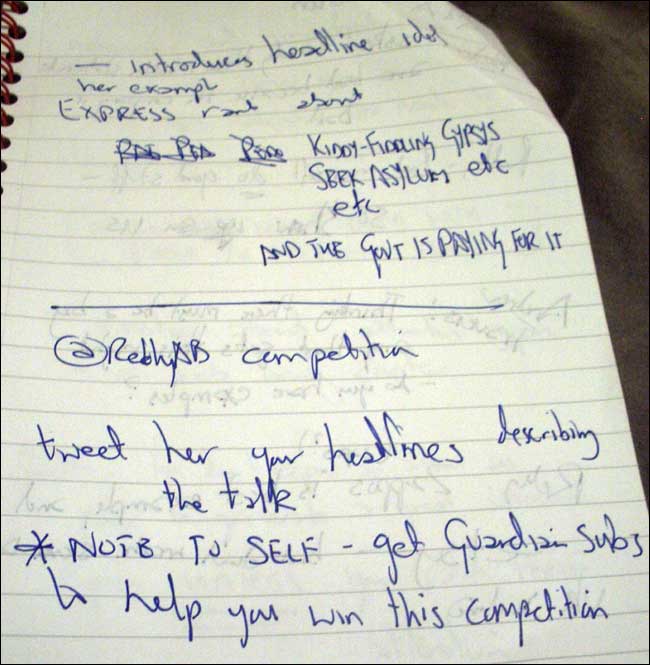 — introduces headline idol
her exampl
EXPRESS rant about
KIDDY-FIDDLING GYPSYS
SEEK ASYLUM etc
etc
AND THE GOVT IS PAYING FOR IT
competition
tweet her your headlines describing
the talk
* NOTE TO SELF - get Guardian subs
↳ help you win this competition